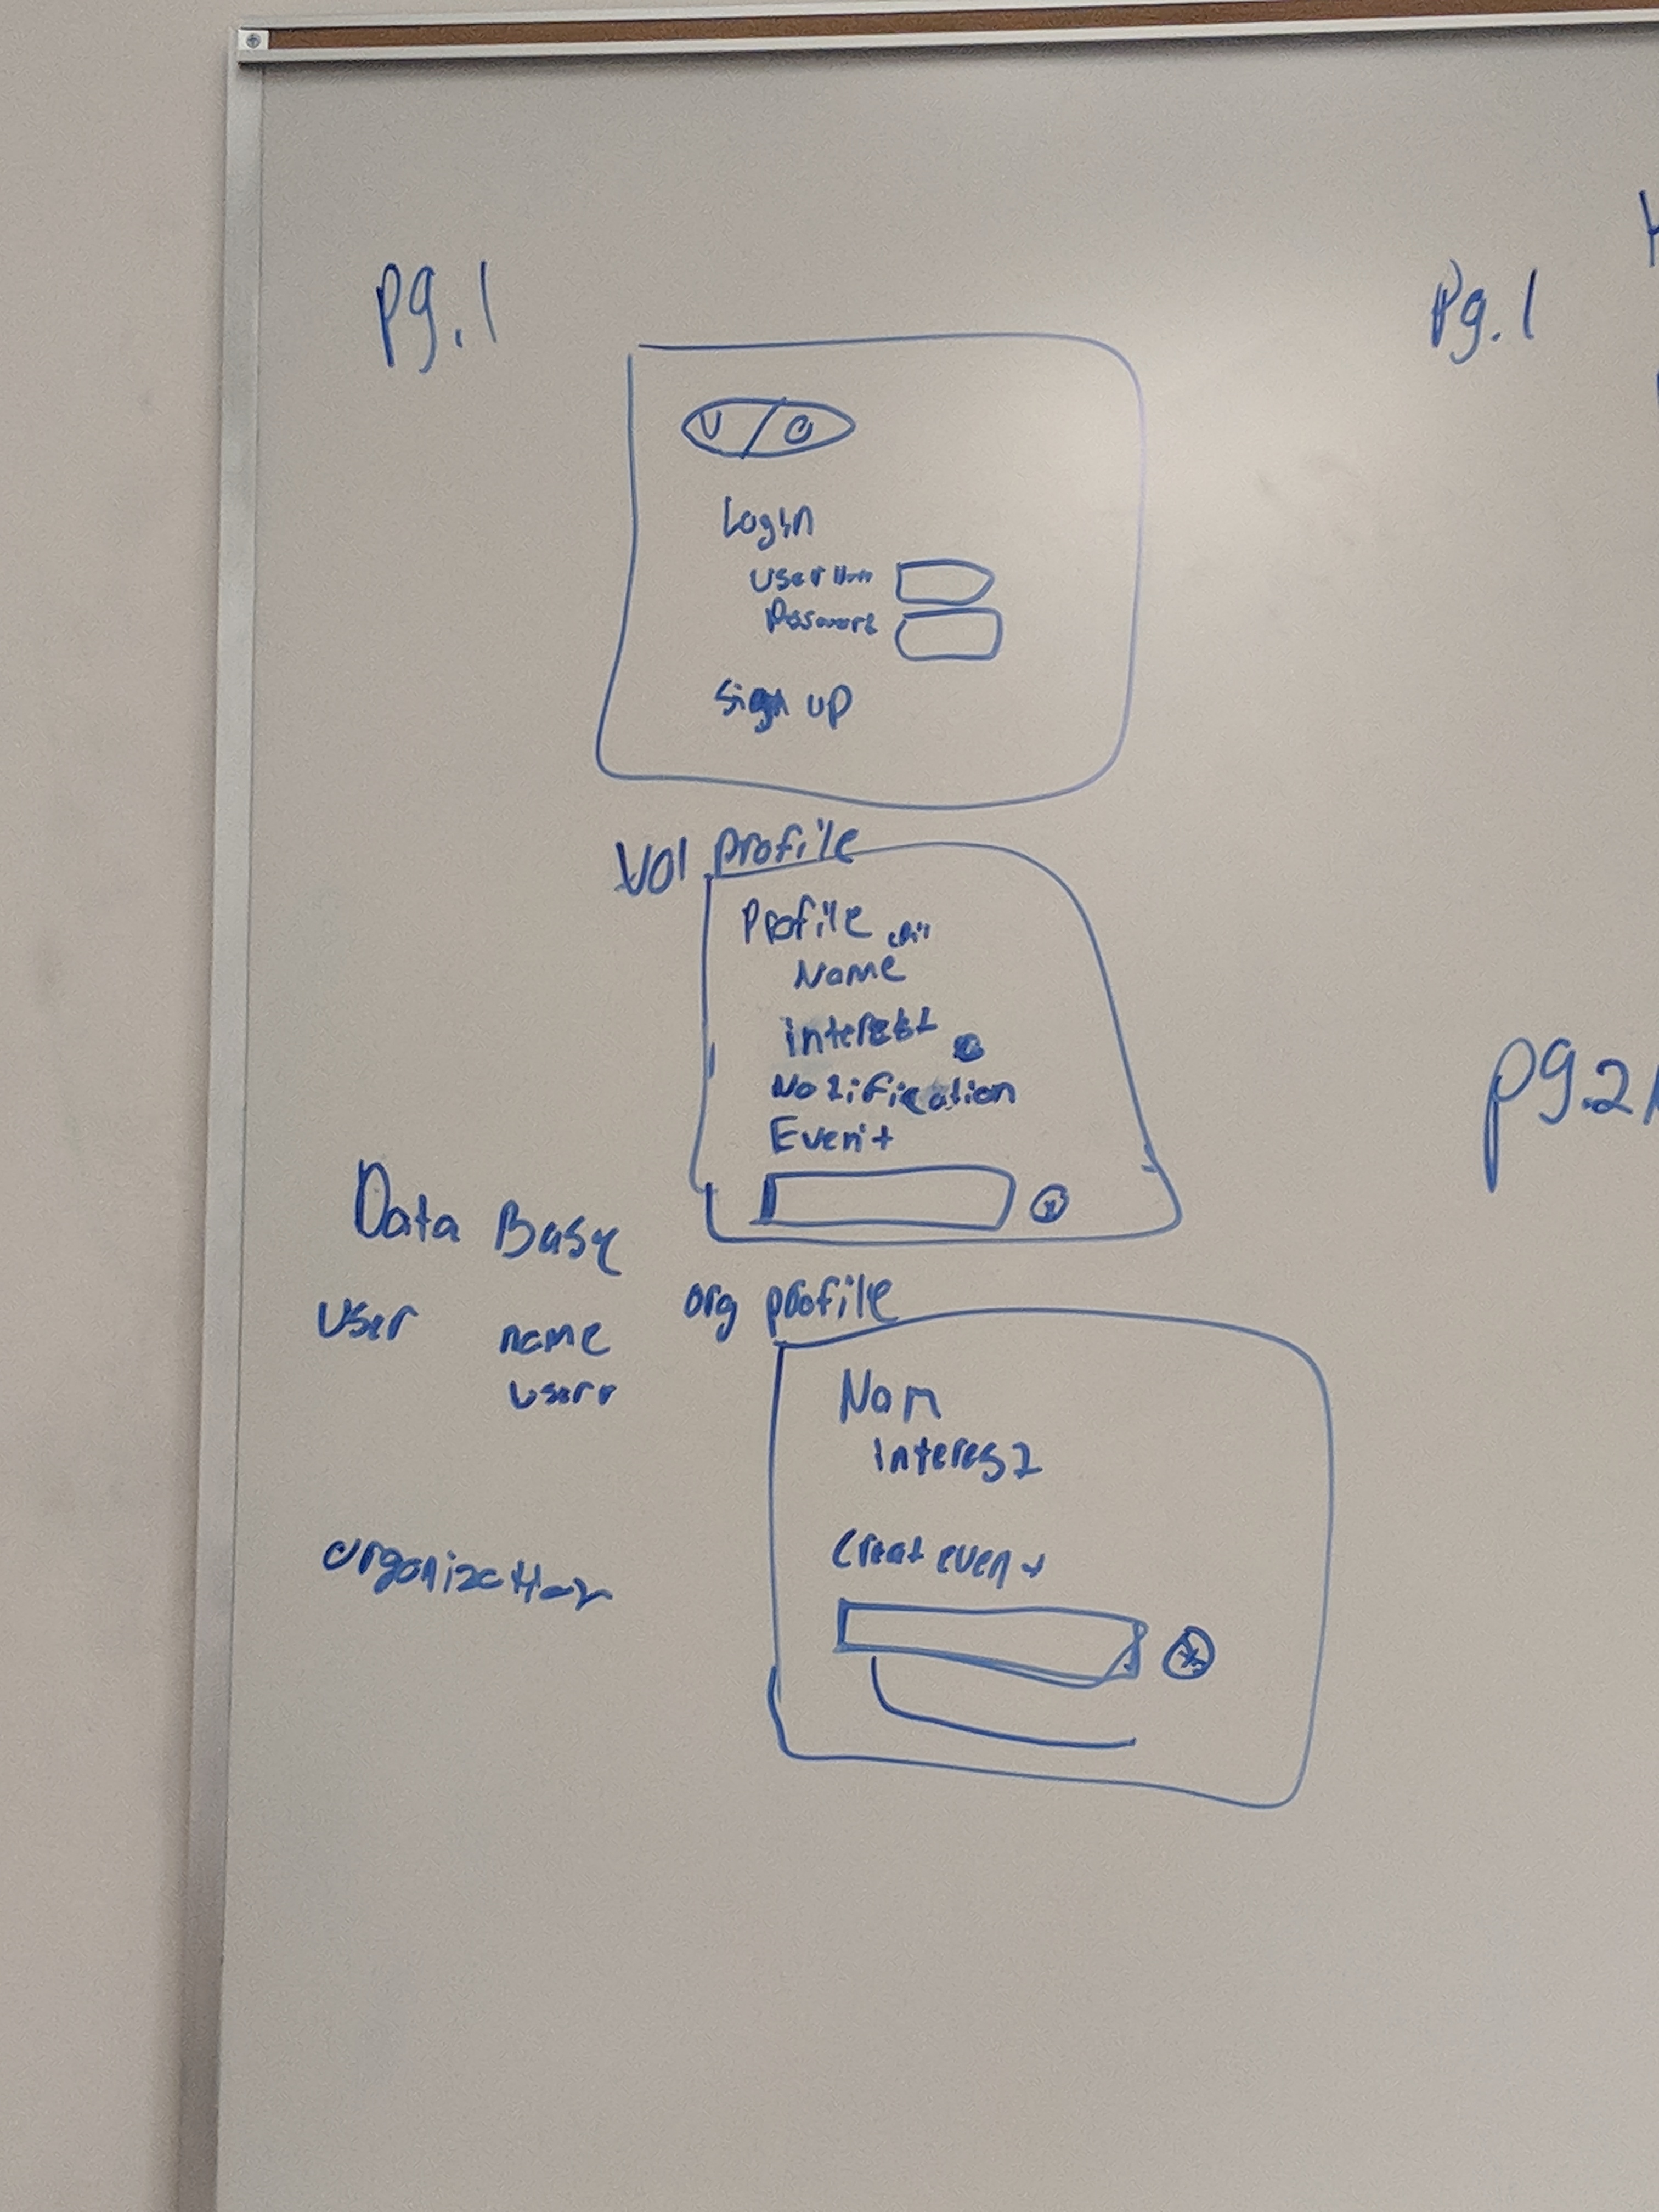 pg.1
V / O
Login
User
Password
Sign up
Vol profile
Profile edit
Name
interest
Notification
Event
Data Base
User name
user
organization
org profile
Nam
interest
Creat event
Pg.1
pg.2